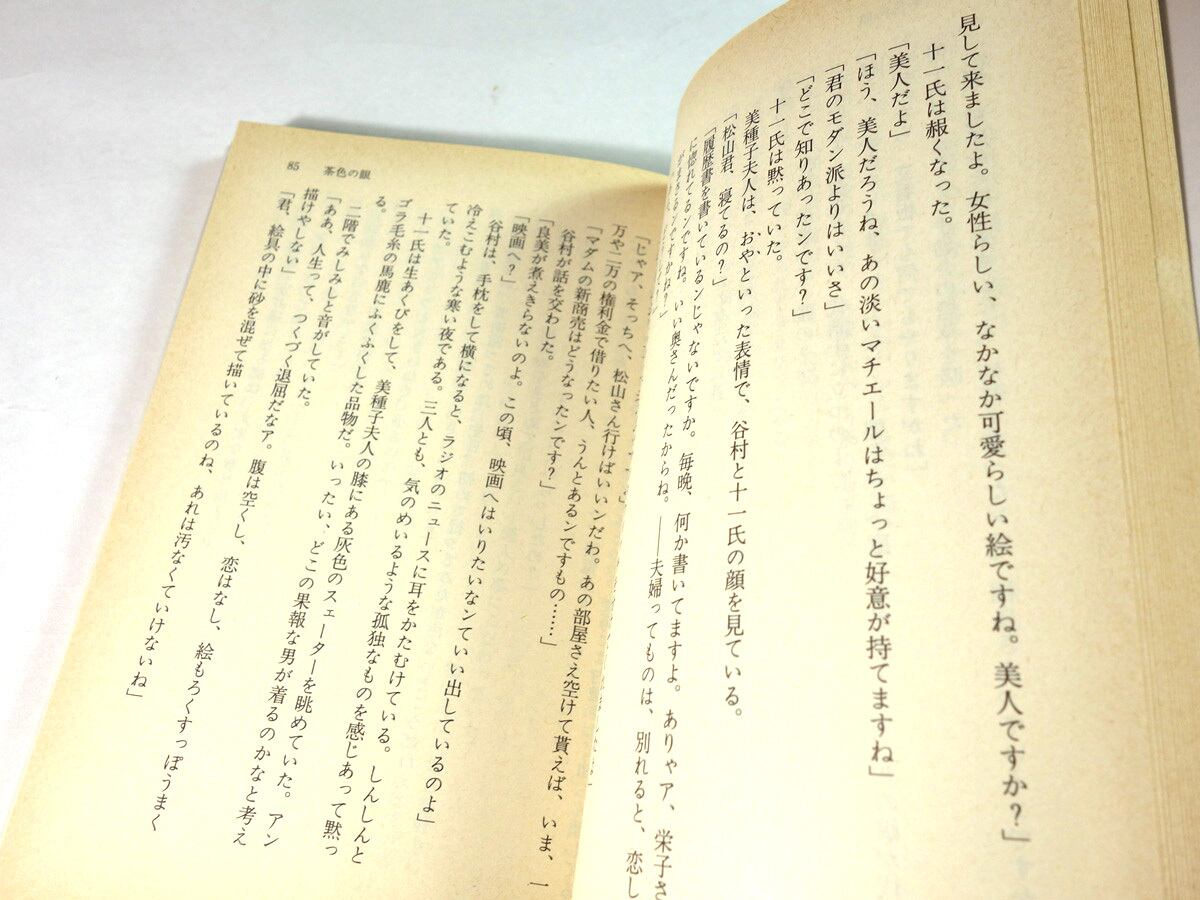 見して来ましたよ。女性らしい、なかなか可愛らしい絵ですね。美人ですか？」
十一氏は赧くなった。
「美人だよ」
「ほう、美人だろうね、あの淡いマチェールはちょっと好意が持てますね」
「君のモダン派よりはいいさ」
「どこで知りあったンです？」
十一氏は黙っていた。
美種子夫人は、おやといった表情で、谷村と十一氏の顔を見ている。
「松山君、寝てるの？」
「履歴書を書いているンじゃないですか。毎晩、何か書いてますよ。ありゃア、栄子さ
に惚れてるンですね。いい奥さんだったからね。――夫婦ってものは、別れると、恋し
「じゃア、そっちへ、松山さん行けばいいンだわ。あの部屋さえ空けて貰えば、いま、一
万や二万の権利金で借りたい人、うんとあるンですもの……」
「マダムの新商売はどうなったンです？」
谷村が話を交わした。
「良美が煮えきらないのよ。この頃、映画へはいりたいなンてい出しているのよ」
「映画へ？」
谷村は、手枕をして横になると、ラジオのニュースに耳をかたむけている。しんしんと
冷えこむような寒い夜である。三人とも、気のめいるような孤独なものを感じあって黙っ
ていた。
十一氏は生あくびをして、美種子夫人の膝にある灰色のスェーターを眺めていた。アン
ゴラ毛糸の馬鹿にふくふくした品物だ。いったい、どこの果報な男が着るのかなと考え
る。
二階でみしみしと音がしていた。
「ああ、人生って、つくづく退屈だなア。腹は空くし、恋はなし、絵もろくすっぽうまく
描けやしない」
「君、絵具の中に砂を混ぜて描いているのね、あれは汚なくていけないね」
85 茶色の眼